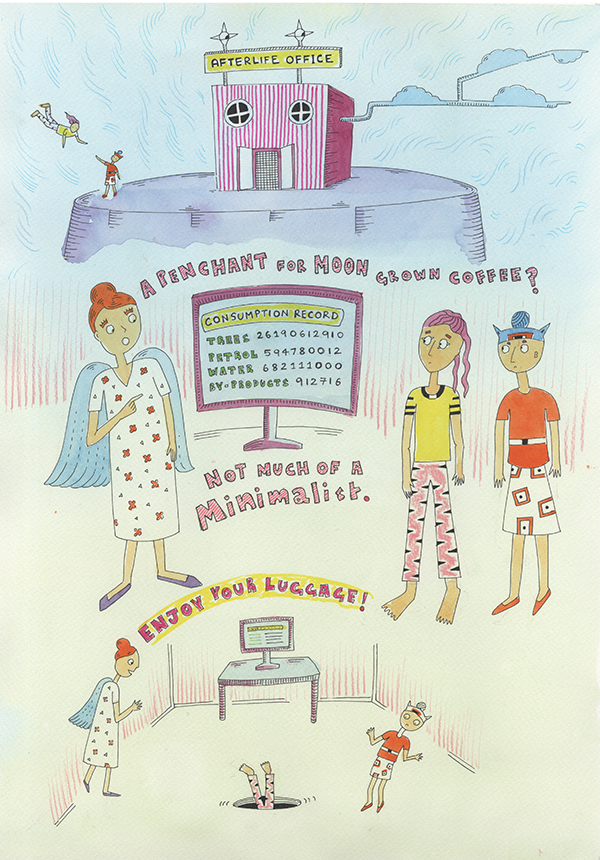 AFTERLIFE OFFICE
A PENCHANT FOR MOON GROWN COFFEE?
CONSUMPTION RECORD
TREES 26190612910
PETROL 594780012
WATER 682111000
BY-PRODUCTS 912716
NOT MUCH OF A
Minimalist.
ENJOY YOUR LUGGAGE!